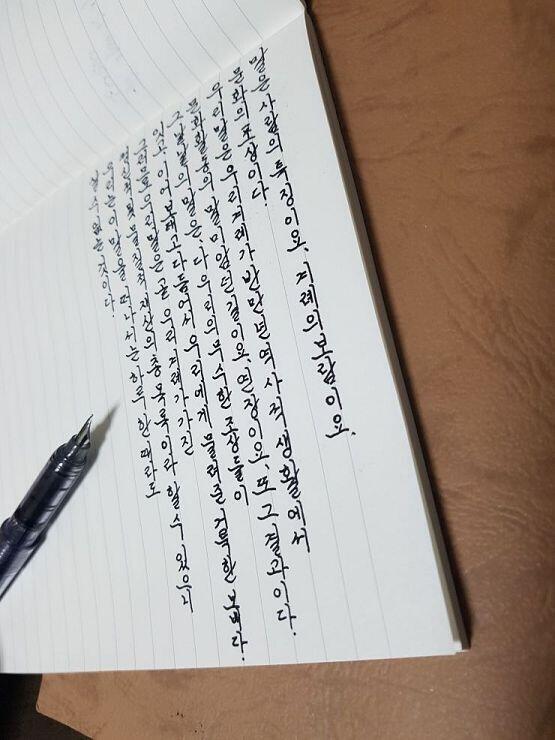 말은 사람의 특징이요, 겨레의 보람이요,
문화의 표상이다
우리 말은 우리 겨레가 반만년 역사적 생활에서
문화활동의 말미암던 길이요, 연장이요, 또 그 결과이다.
그 낱낱의 말은, 다 우리의 무수한 조상들이
잇고 이어 보태고 다듬어서 우리에게 물려준 거룩한 보배다.
그러므로 우리 말은 곧 우리 겨레가 가진
정신적 및 물질적 재산의 총 목록이라 할 수 있으니
우리는 이 말을 떠나서는 하루 한 때라도
살 수 없는 것이다.